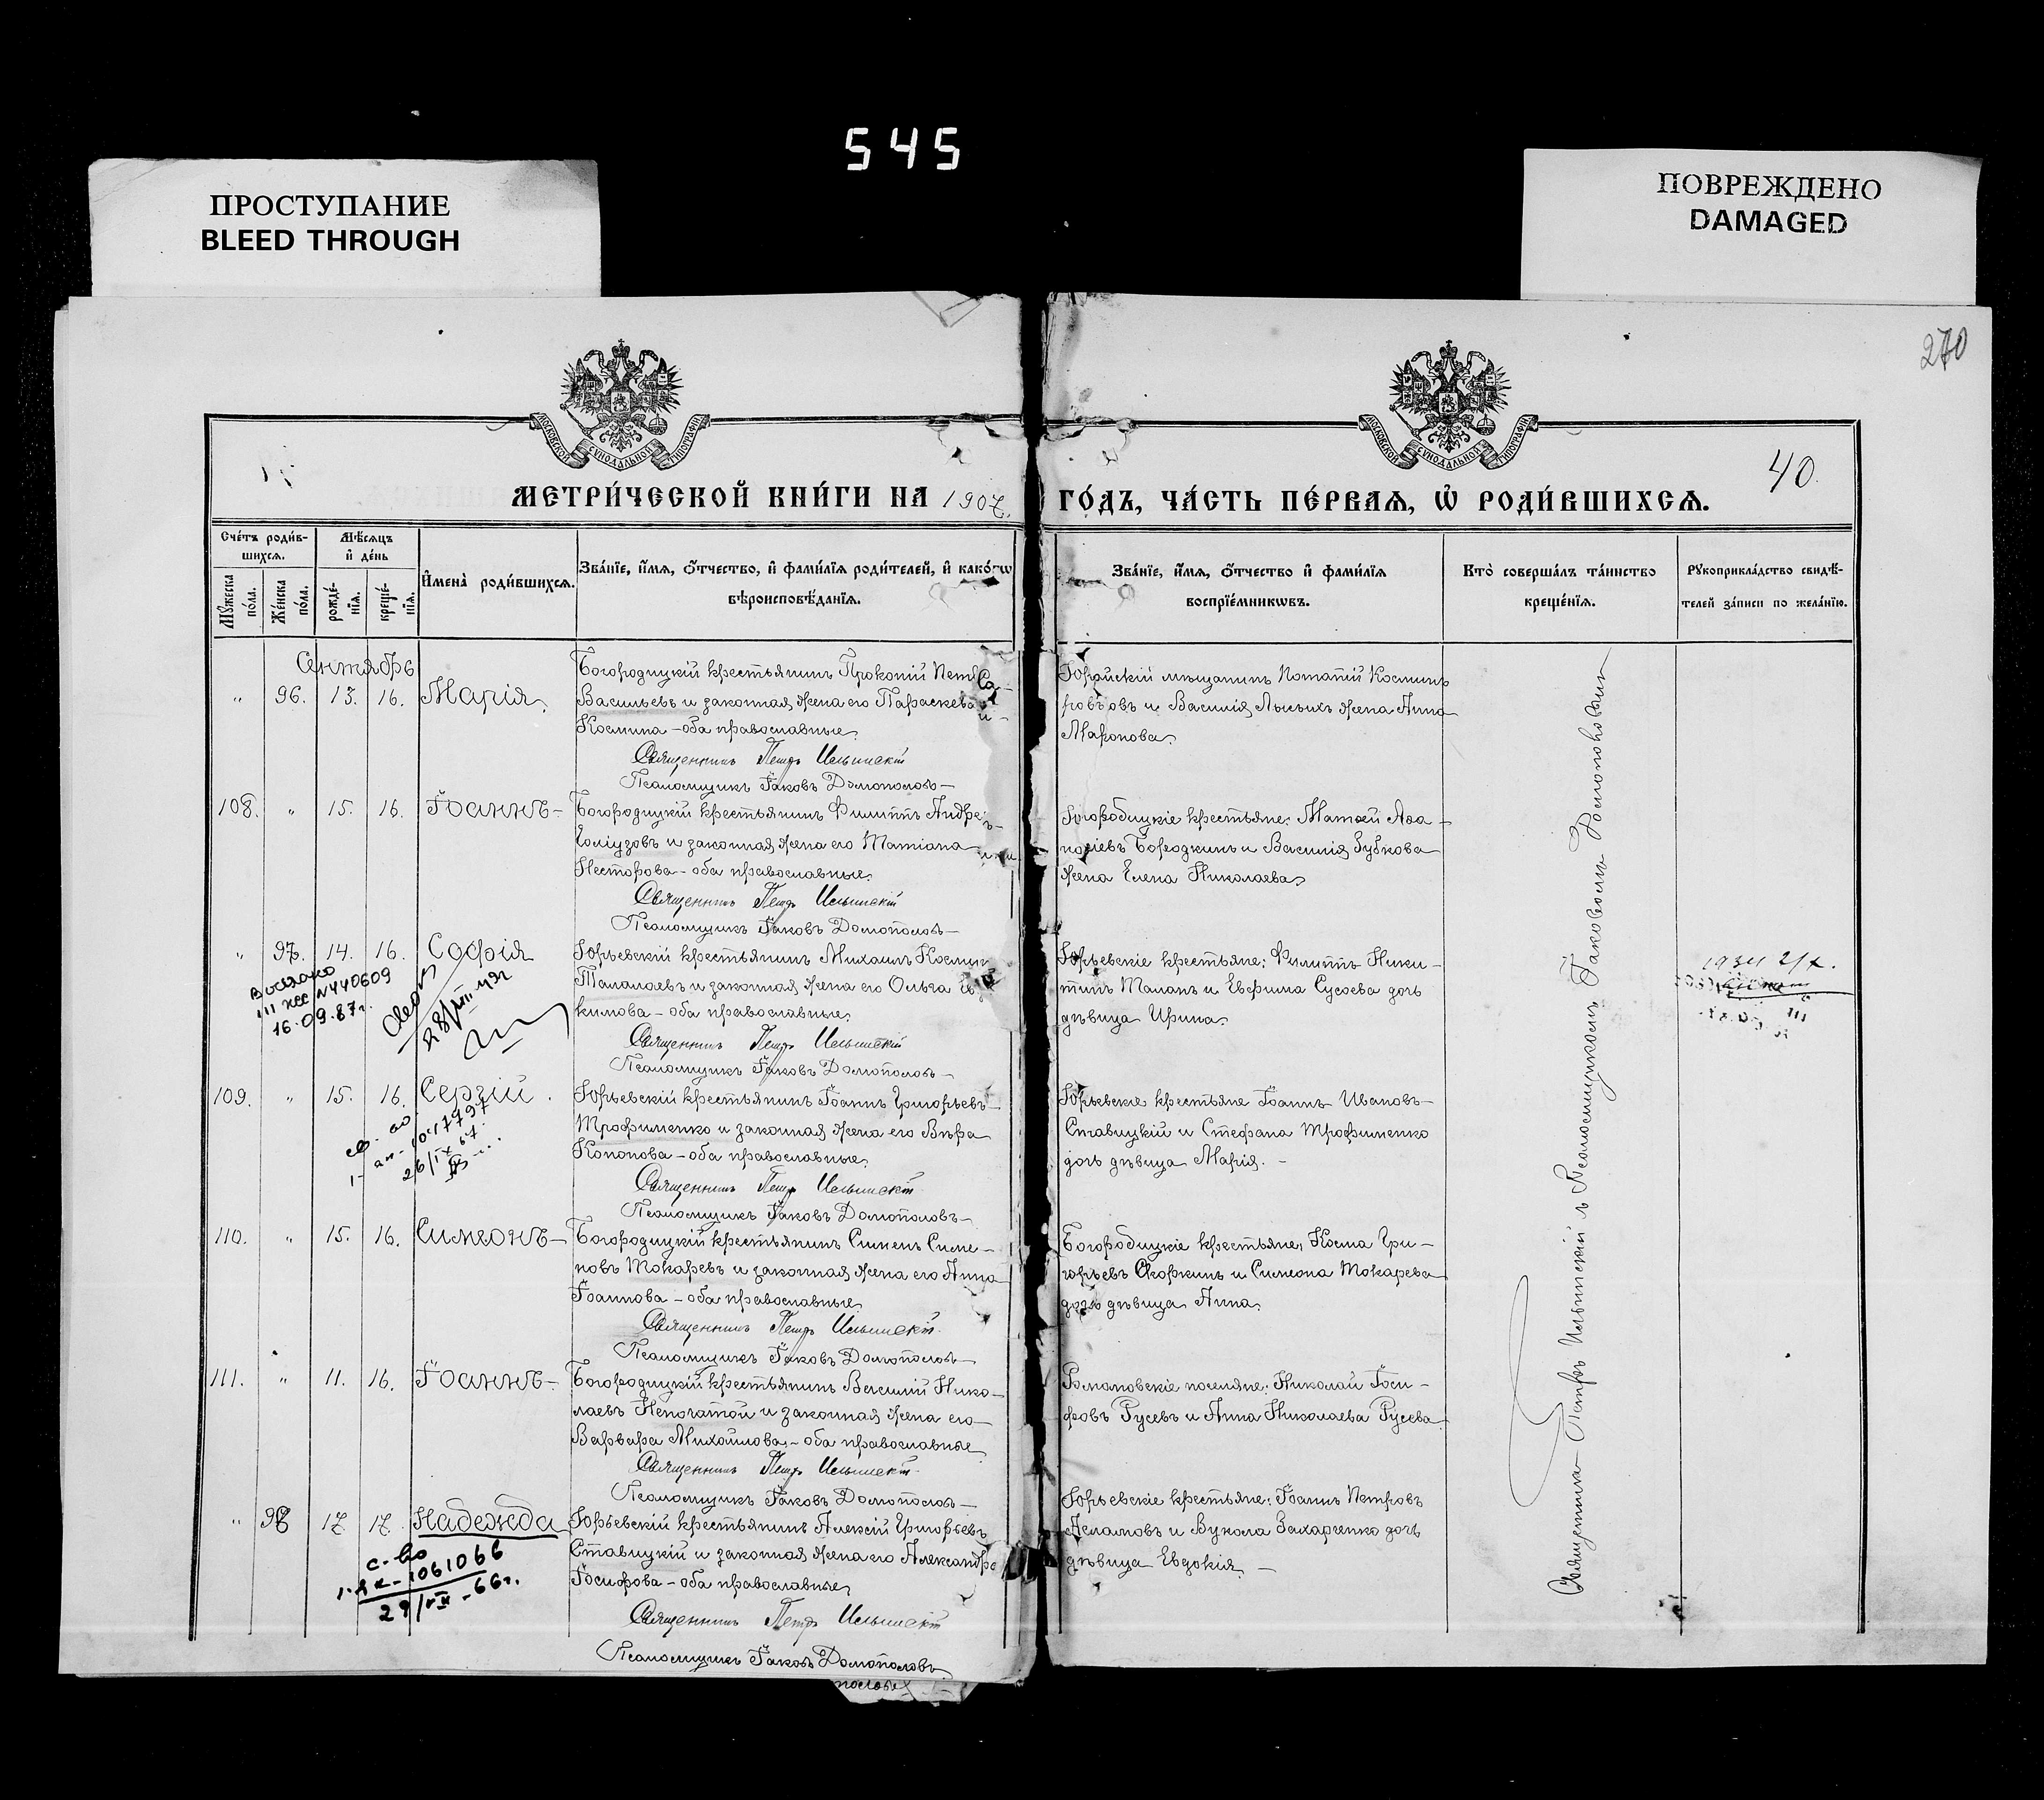 545
ПРОСТУПАНИЕ
BLEED THROUGH
ПОВРЕЖДЕНО
DAMAGED
270
МОСКОВСКОЙ СУНОДАЛЬНОЙ ТИПОГРАФІИ
МОСКОВСКОЙ СУНОДАЛЬНОЙ ТИПОГРАФІИ
40.
МЕТРИ́ЧЕСКОЙ КНИ́ГИ НА 1907.
ГО́ДЪ, ЧА́СТЬ ПЕ́РВАЯ, Ѡ РОДИ́ВШИХСЯ.
Сче́тъ роди́в-
шихся.
Мѣ́сяцъ
и де́нь
Му́жеска
по́ла.
Же́нска
по́ла.
рожде́-
нїя.
креще́-
нїя.
Имена̀ роди́вшихся.
Зва́нїе, и́мя, ѻ́тчество, и фами́лїя роди́телей, и како́гѡ
вѣроисповѣ́данїя.
Зва́нїе, и́мя, ѻ́тчество и фами́лїя
воспрїе́мникѡвъ.
Кто̀ соверша́лъ та́инство
креще́нїя.
Рукоприкла́дство свидѣ́-
телей за́писи по жела́нїю.
Сентябрь
" 96. 13. 16. Марія
Богородицкій крестьянинъ Прокопій
Васильевъ и законная жена его Параскева
Космина - оба православные.
Священникъ Петръ Ильинскій
Псаломщикъ Іаковъ Домополовъ
мѣщанинъ Потапій Косминъ
и Василія Лысыхъ жена Анна
108. " 15. 16. Іоаннъ
Богородицкій крестьянинъ Филиппъ Андре
и законная жена его Татіана
Несторова - оба православные.
Священникъ Петръ Ильинскій
Псаломщикъ Іаковъ Домополовъ
Богородицкіе крестьяне: Матѳей Ага-
Бородкинъ и Василія Зубкова
жена Елена Николаева.
" 97. 14. 16. Софія
Юрьевскій крестьянинъ Михаилъ Космин
Таламаевъ и законная жена его Ольга
кимова - оба православные.
Священникъ Петръ Ильинскій
Псаломщикъ Іаковъ Домополовъ
Юрьевскіе крестьяне: Филиппъ Ники-
тинъ и Евфима Сусоева дочь
дѣвица Ирина.
III N440609
16.09.87г.
109. " 15. 16. Сергій.
Юрьевскій крестьянинъ Іоаннъ Григорьевъ
Трофименко и законная жена его Вѣра
Кононова - оба православные.
Священникъ Петръ Ильинскій
Псаломщикъ Іаковъ Домополовъ
Юрьевскіе крестьяне Іоаннъ Ивановъ
Ставицкій и Стефана Трофименко
дочь дѣвица Марія. -
110. " 15. 16. Симеонъ
Богородицкій крестьянинъ Симеонъ Симе-
новъ Токаревъ и законная жена его Анна
Іоаннова - оба православные
Священникъ Петръ Ильинскій
Псаломщикъ Іаковъ Домополовъ
Богородицкіе крестьяне, Косма Гри-
горьевъ Скоркинъ и Симеона Токарева
дочь дѣвица Анна.
111. " 11. 16. Іоаннъ
Богородицкій крестьянинъ Василій Нико-
лаевъ Непочатой и законная жена его
Варвара Михайлова - оба православные
Священникъ Петръ Ильинскій
Псаломщикъ Іаковъ Домополовъ
Романовскіе поселяне: Николай Іоси-
фовъ Русевъ и Анна Николаева Русева
" 98 17 17 Надежда
Юрьевскій крестьянинъ Алексій Григорьевъ
Ставицкій и законная жена его Александра
Іосифова - оба православные
Священникъ Петръ Ильинскій
Псаломщикъ Іаковъ Домополовъ
Юрьевскіе крестьяне: Іоаннъ Петровъ
и Вукола Захарченко дочь
дѣвица Евдокія. -
с-во
1061066
Священникъ Петръ Ильинскій съ Псаломщикомъ Іаковомъ Домополовымъ